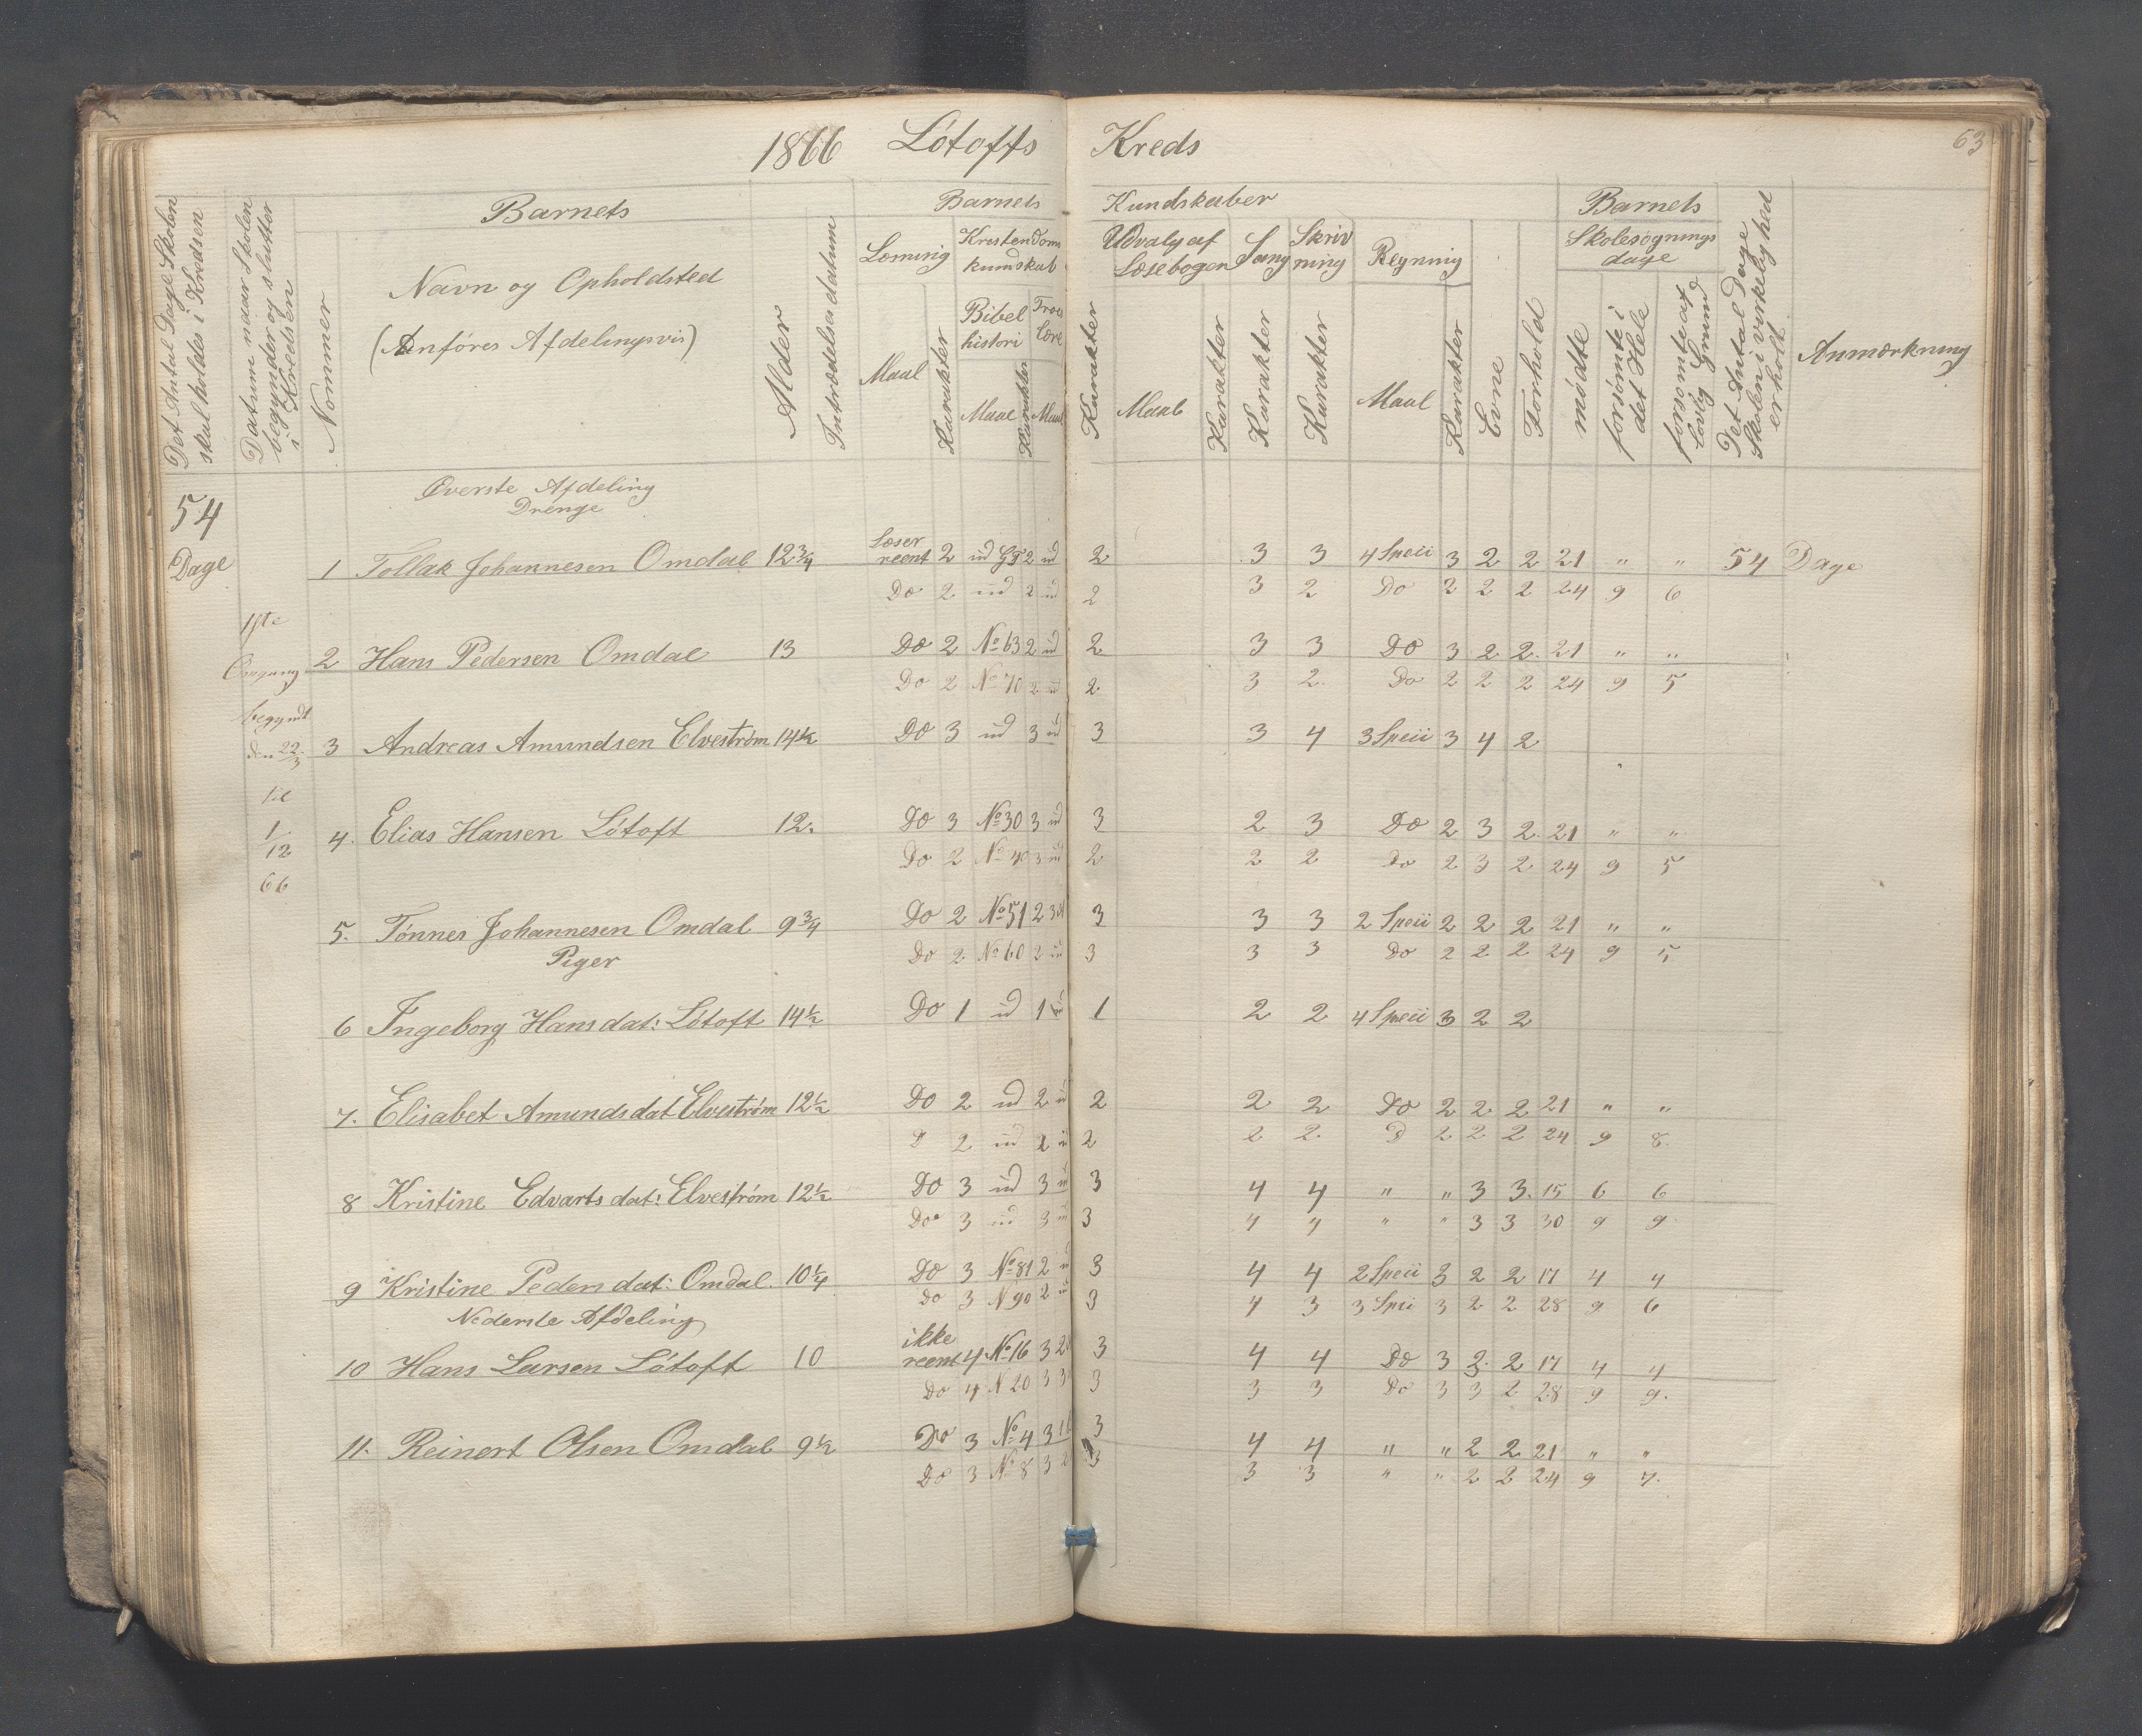 1866 Lótofts Kreds
63
Det Antal Dage Skolen skal holdes i Kredsen
Datum naar Skolen begynder og slutter i Kredsen
Nommer
Barnets
Navn og Opholdsted
(Anføres Afdelingsvis)
Alder
Intrædelses datum
Barnets Kundskaber
Læsning
Maal
Karakter
Kristendoms kundskab
Bibel histori
Maal
Karakter
Troes Lære
Maal
Karakter
Udvalg af Læsebogen
Maal
Karakter
Sang
Karakter
Skrivning
Karakter
Regning
Maal
Karakter
Evne
Forhold
Barnets
Skolesøgnings dage
mødte
forsømte i det Hele
forsømte af lovlig Grund
Det Antal Dage Skolen i virkelighed er holdt
Anmærkning
54
Dage
1ste
Omgang
begyndt
den 22/3
til
1/12
66
Øverste Afdeling
Drenge
1 Tollak Johannesen Omdal 12 3/4 Læser reent 2 ud GT 2 ud 2 3 3 4 Speci 3 2 2 21 " " 54 Dage
Do 2 ud 2 ud 2 3 2 Do 2 2 2 24 9 6
2 Hans Pedersen Omdal 13 Do 2 No 63 2 ud 2 3 3 Do 3 2 2. 21 " "
Do 2 No 70 2 ud 2 3 2. Do 2 2 2 24 9 5
3 Andreas Amundsen Elvestrøm 14 1/2 Do 3 ud 3 ud 3 3 4 3 Speci 3 4 2
4. Elias Hansen Lótoft 12. Do 3 No 30 3 ud 3 2 3 Do 2 3 2. 21 " "
Do 2 No 40 3 ud 2 2 2 Do 2 3 2 24 9 5
5. Tønnes Johannesen Omdal 9 3/4 Do 2 No 51 2 3 3 3 2 Speci 2 2 2 21 " "
Piger
Do 2 No 60 2 ud 3 3 3 Do 2 2 2 24 9 5
6 Ingeborg Hansdat: Lótoft 14 1/2 Do 1 ud 1 ud 1 2 2 4 Speci 3 2 2
7. Elisabet Amundsdat Elvestrøm 12 1/2 Do 2 ud 2 ud 2 2 2 Do 2 2 2 21 " "
D 2 ud 2 ud 2 2 2. D 2 2 2 24 9 8.
8 Kristine Edvartsdat: Elvestrøm 12 1/2 Do 3 ud 3 ud 3 4 4 " " 3 3. 15 6 6
Do 3 ud 3 ud 3 4 4 " " 3 3 30 9 9
9 Kristine Pedersdat: Omdal. 10 1/4 Do 3 No 81 2 ud 3 4 4 2 Speci 3 2 2 17 4 4
Do 3 N 90 2 ud 3 4 3 3 Speci 3 2 2 28 9 6
Nederste Afdeling
10 Hans Larsen Lótoft 10 ikke reent 4 No 16 3 3 4 4 Do 3 2. 2 17 4 4
Do 4 N 20 3 3 3 3 Do 3 3 2 28 9 9.
11. Reinert Olsen Omdal 9 1/2 Do 3 No 4 3 3 4 4 " " 2 2 21 " "
Do 3 No 8 3 3 3 3 " " 2 2 24 9 7.